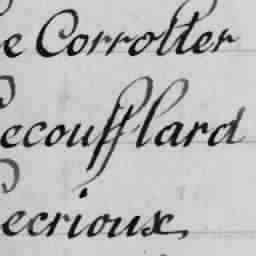 e Corrolter
ecoufflard
ecrioux